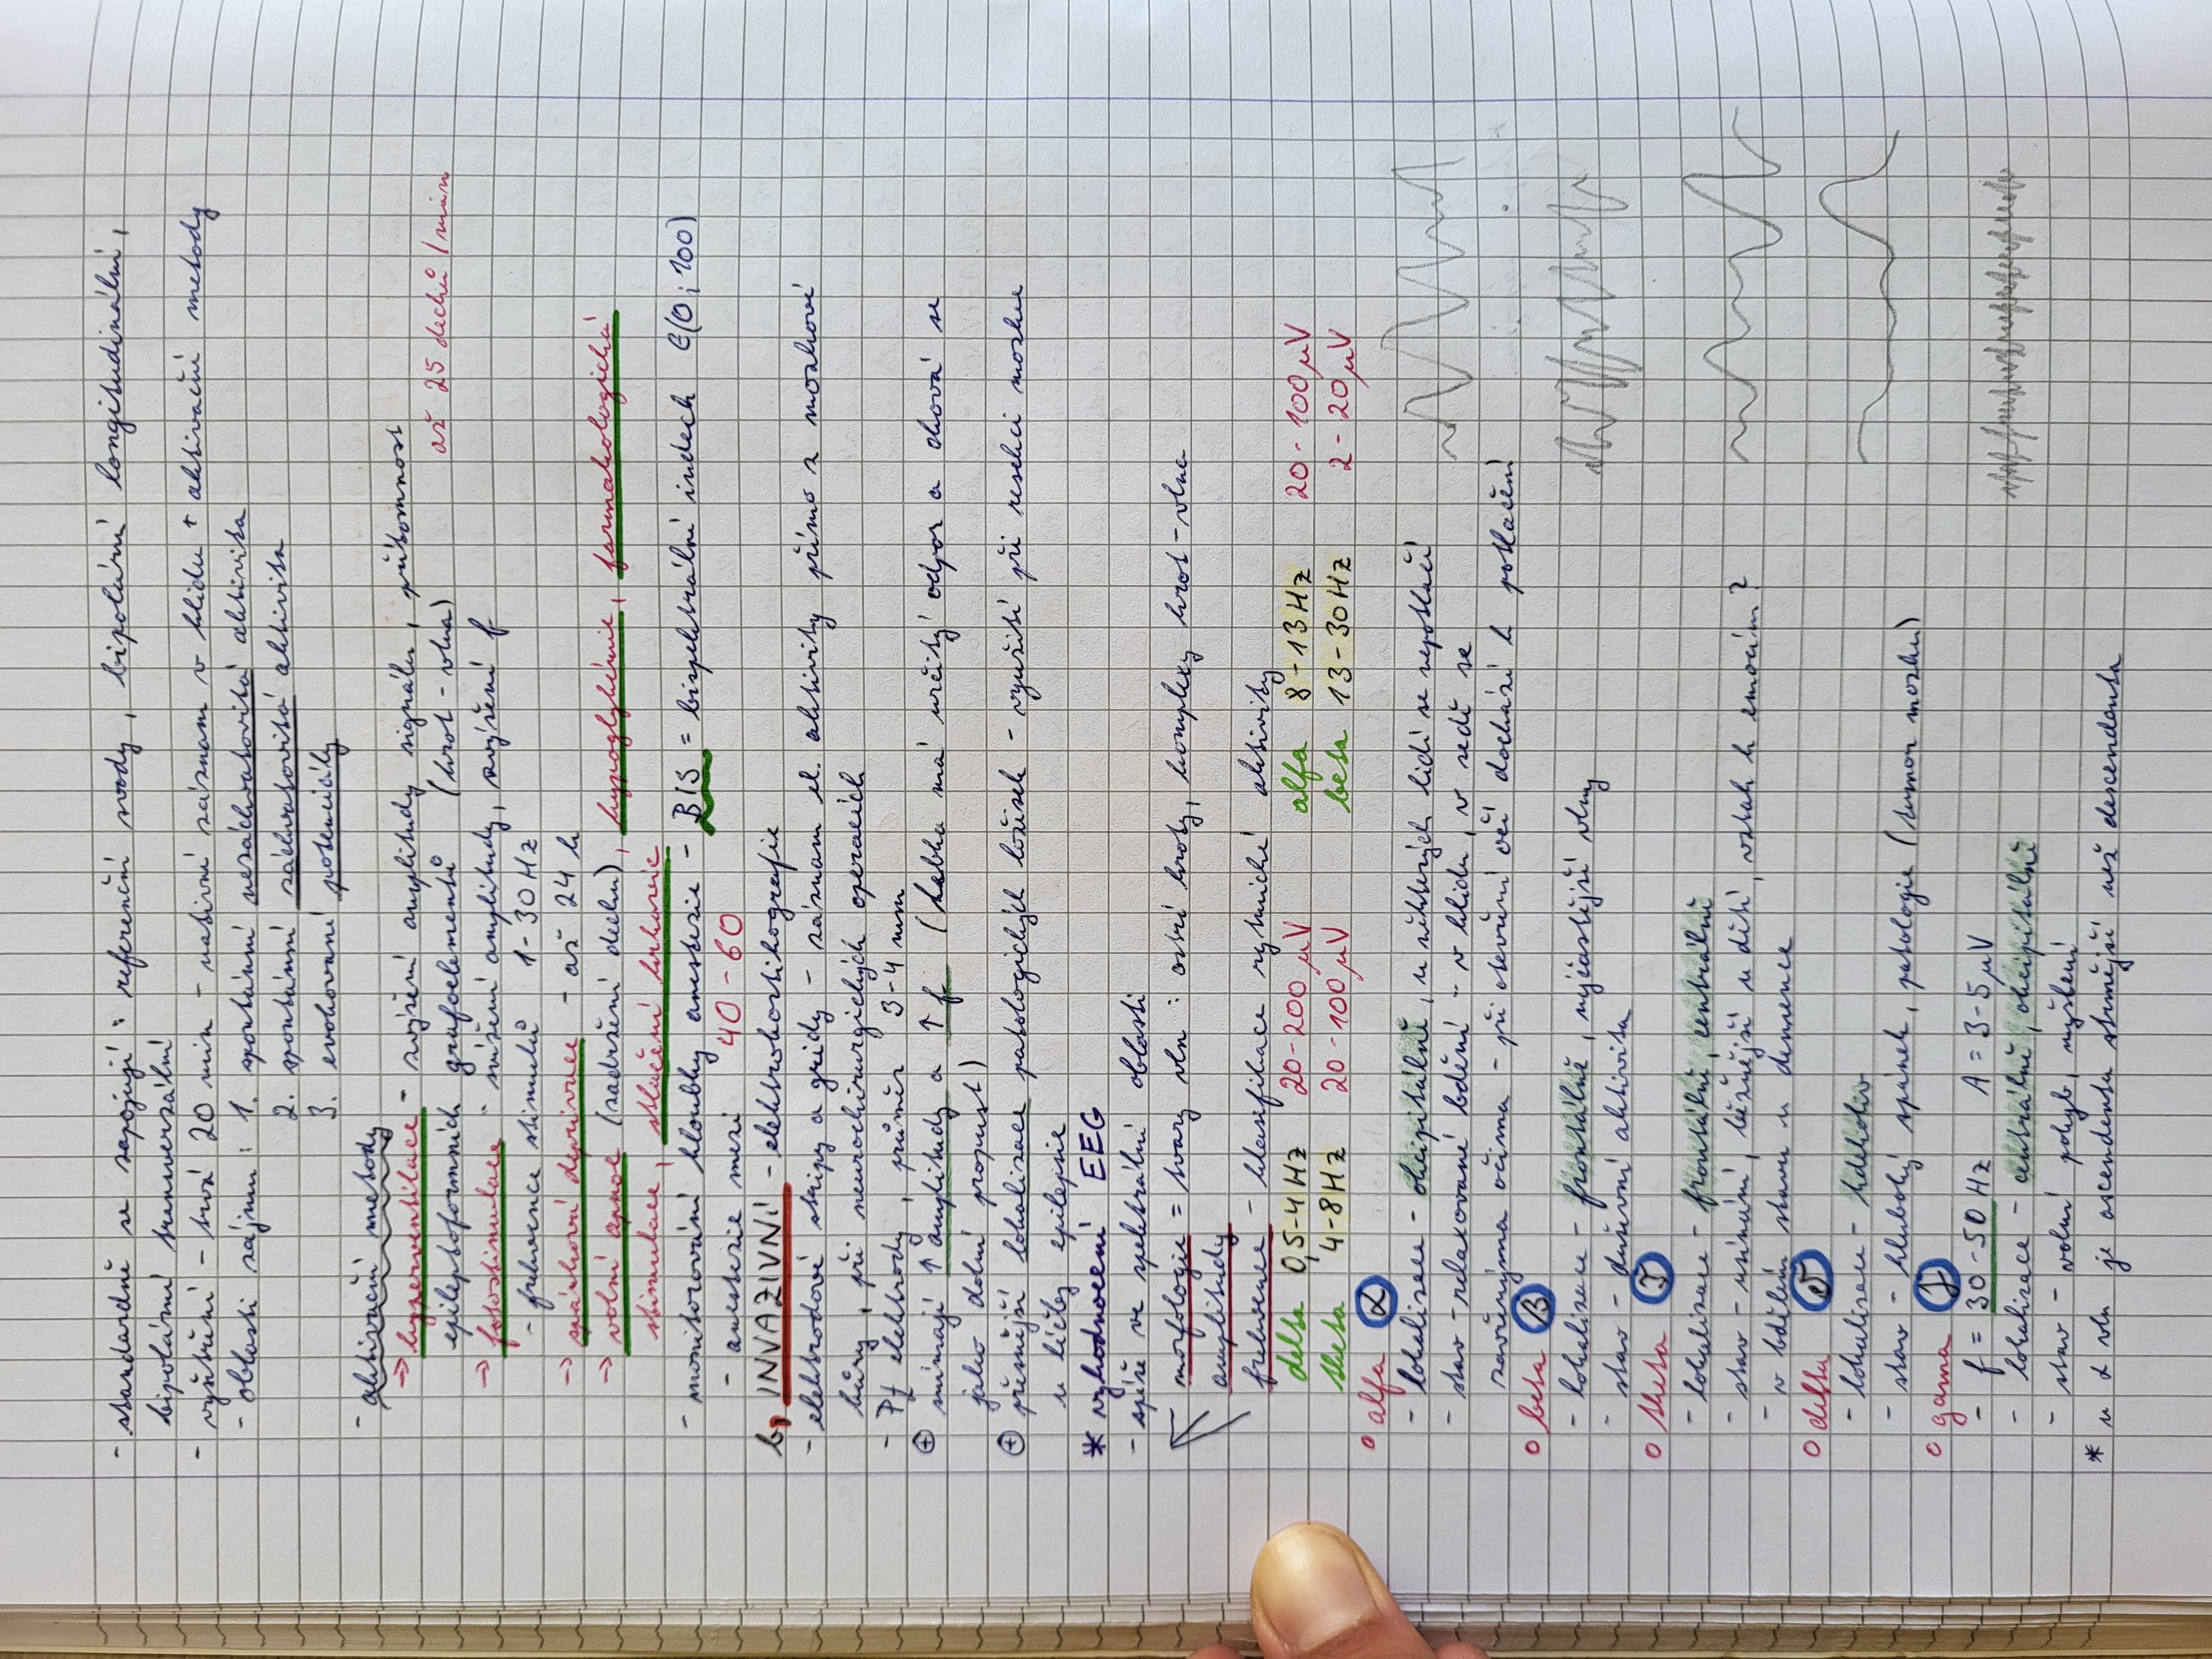 - standardně se zapojují : referenční svody, bipolární longitudinální,
bipolární transverzální
- vyšetření - trvá 20 min - nativní záznam v klidu + aktivační metody
- oblasti zájmu : 1. spontánní nezáchvatovitá aktivita
2. spontánní záchvatovitá aktivita
3. evokované potenciály
- aktivační metody
→ hyperventilace - zvýšení amplitudy signálu, přítomnost
epileptoformních grafoelementů (hrot - vlna) až 25 dechů / min
→ fotostimulace - snížení amplitudy, zvýšení f
- frekvence stimulů 1-30 Hz
→ spánková deprivace - až 24 h
→ volní apnoe (zadržení dechu), hypoglykémie, farmakologická
stimulace, stlačení krkavic
- monitorování hloubky anestezie - BIS = bispektrální index ∈(0; 100)
- anestezie mezi 40 - 60
b, INVAZIVNÍ - elektrokortikografie
- elektrodové stripy a gridy - záznam el. aktivity přímo z mozkové
kůry, při neurochirurgických operacích
- Pt elektrody, průměr 3-4 mm
⊕ snímají ↑ amplitudy a ↑ f (lebka má určitý odpor a chová se
jako dolní propust)
⊕ přesnější lokalizace patologických ložisek - využití při resekci mozku
u léčby epilepsie
* vyhodnocení EEG
- spíše ve spektrální oblasti
morfologie = tvary vln : ostré hroty, komplexy hrot-vlna
amplitudy
frekvence - klasifikace rytmické aktivity
delta 0,5-4 Hz 20-200 µV alfa 8-13 Hz 20-100 µV
theta 4-8 Hz 20-100 µV beta 13-30 Hz 2-20 µV
o alfa α
- lokalizace - okcipitálně, u některých lidí se nepotlačí
- stav - relaxované bdění - v klidu, v sedě se
zavřenýma očima - při otevření očí dochází k potlačení
o beta β
- lokalizace - frontálně, nejčastější vlny
- stav - duševní aktivita
o theta
- lokalizace - frontálně, centrálně
- stav - usínání, běžnější u dětí, vztah k emocím?
- v bdělém stavu u demence
o delta δ
- lokalizace - kdekoliv
- stav - hluboký spánek, patologie (tumor mozku)
o gama γ
- f = 30-50 Hz A = 3-5 µV
- lokalizace - centrálně, okcipitálně
- stav - volní pohyb, myšlení
* u α vln je ascendenta strmější než descendenta